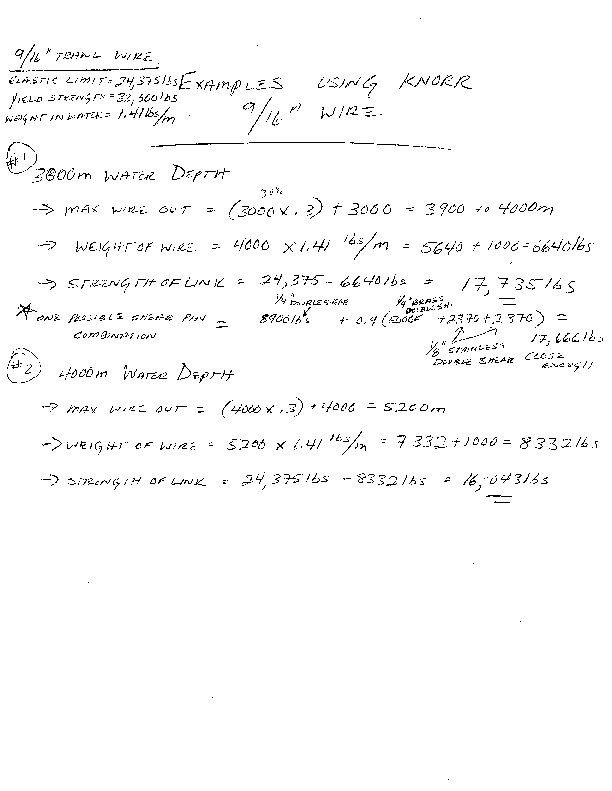 9/16" TRAWL WIRE
ELASTIC LIMIT = 24,375 lbs
YIELD STRENGTH = 32,500 lbs
WEIGHT IN WATER = 1.41 lbs/m
EXAMPLES USING KNORR
9/16" WIRE.
#1
3000m WATER DEPTH
30%
→ MAX WIRE OUT = (3000 x .3) + 3000 = 3900 to 4000m
→ WEIGHT OF WIRE = 4000 x 1.41 lbs/m = 5640 + 1000 = 6640 lbs
→ STRENGTH OF LINK = 24,375 - 6640 lbs = 17,735 lbs
1/4" DOUBLE SHEAR 1/4" BRASS DOUBLE SH.
* ONE POSSIBLE SHEAR PIN COMBINATION = 8900 lbs + 0.4 ( + 2370 + 2370) = 17,666 lbs
1/8" STAINLESS DOUBLE SHEAR
CLOSE ENOUGH
#2
4000m WATER DEPTH
→ MAX WIRE OUT = (4000 x .3) + 4000 = 5200m
→ WEIGHT OF WIRE = 5200 x 1.41 lbs/m = 7332 + 1000 = 8332 lbs
→ STRENGTH OF LINK = 24,375 lbs - 8332 lbs = 16,043 lbs